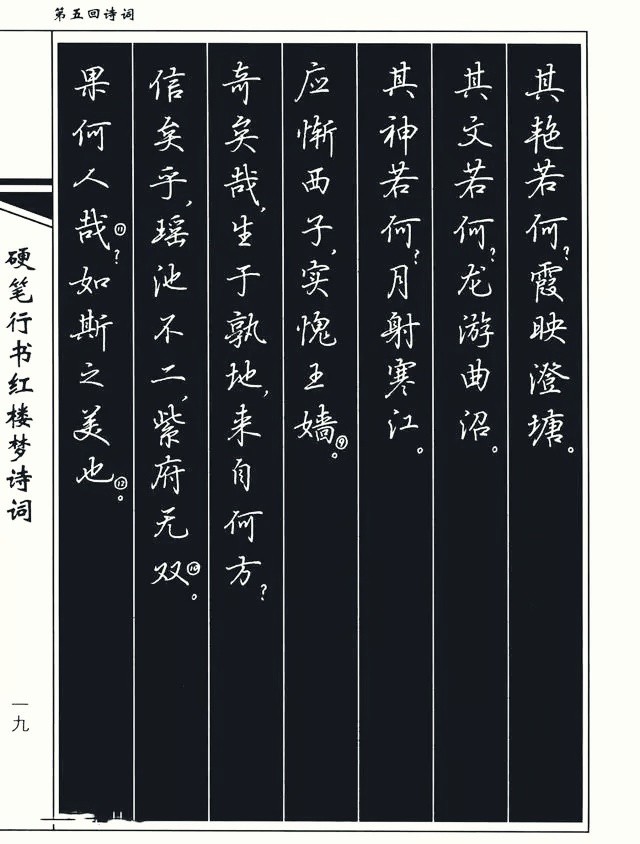 第五回诗词
其艳若何?霞映澄塘。
其文若何?龙游曲沼。
其神若何?月射寒江。
应惭西子,实愧王嫱⑨。
奇矣哉,生于孰地,来自何方?
信矣乎,瑶池不二,紫府无双⑩。
果何人哉⑪?如斯之美也⑫。
硬笔行书红楼梦诗词
一九